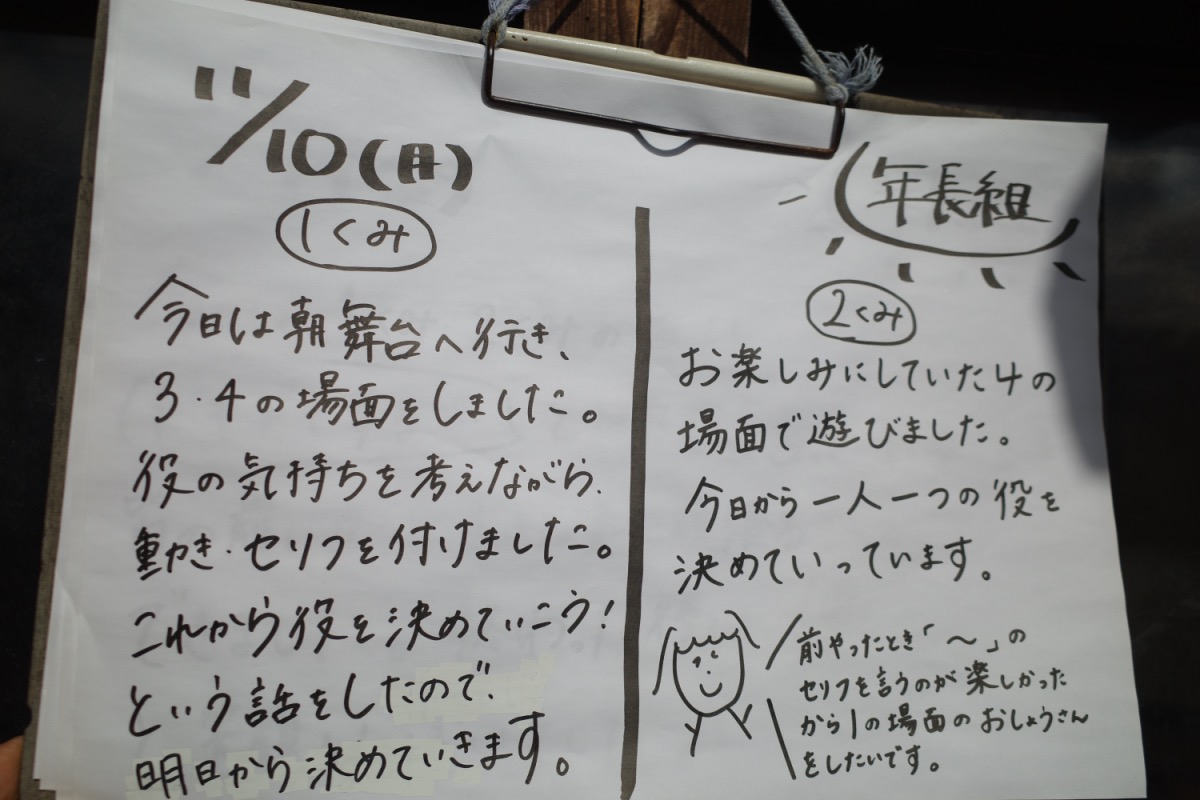 11/10(月)
1くみ
今日は朝舞台へ行き、
3・4の場面をしました。
役の気持ちを考えながら、
動き・セリフを付けました。
これから役を決めていこう!
という話をしたので、
明日から決めていきます。
年長組
2くみ
お楽しみにしていた4の
場面で遊びました。
今日から一人一つの役を
決めていっています。
前やったとき「〜」の
セリフを言うのが楽しかった
から1の場面のおしょうさん
をしたいです。